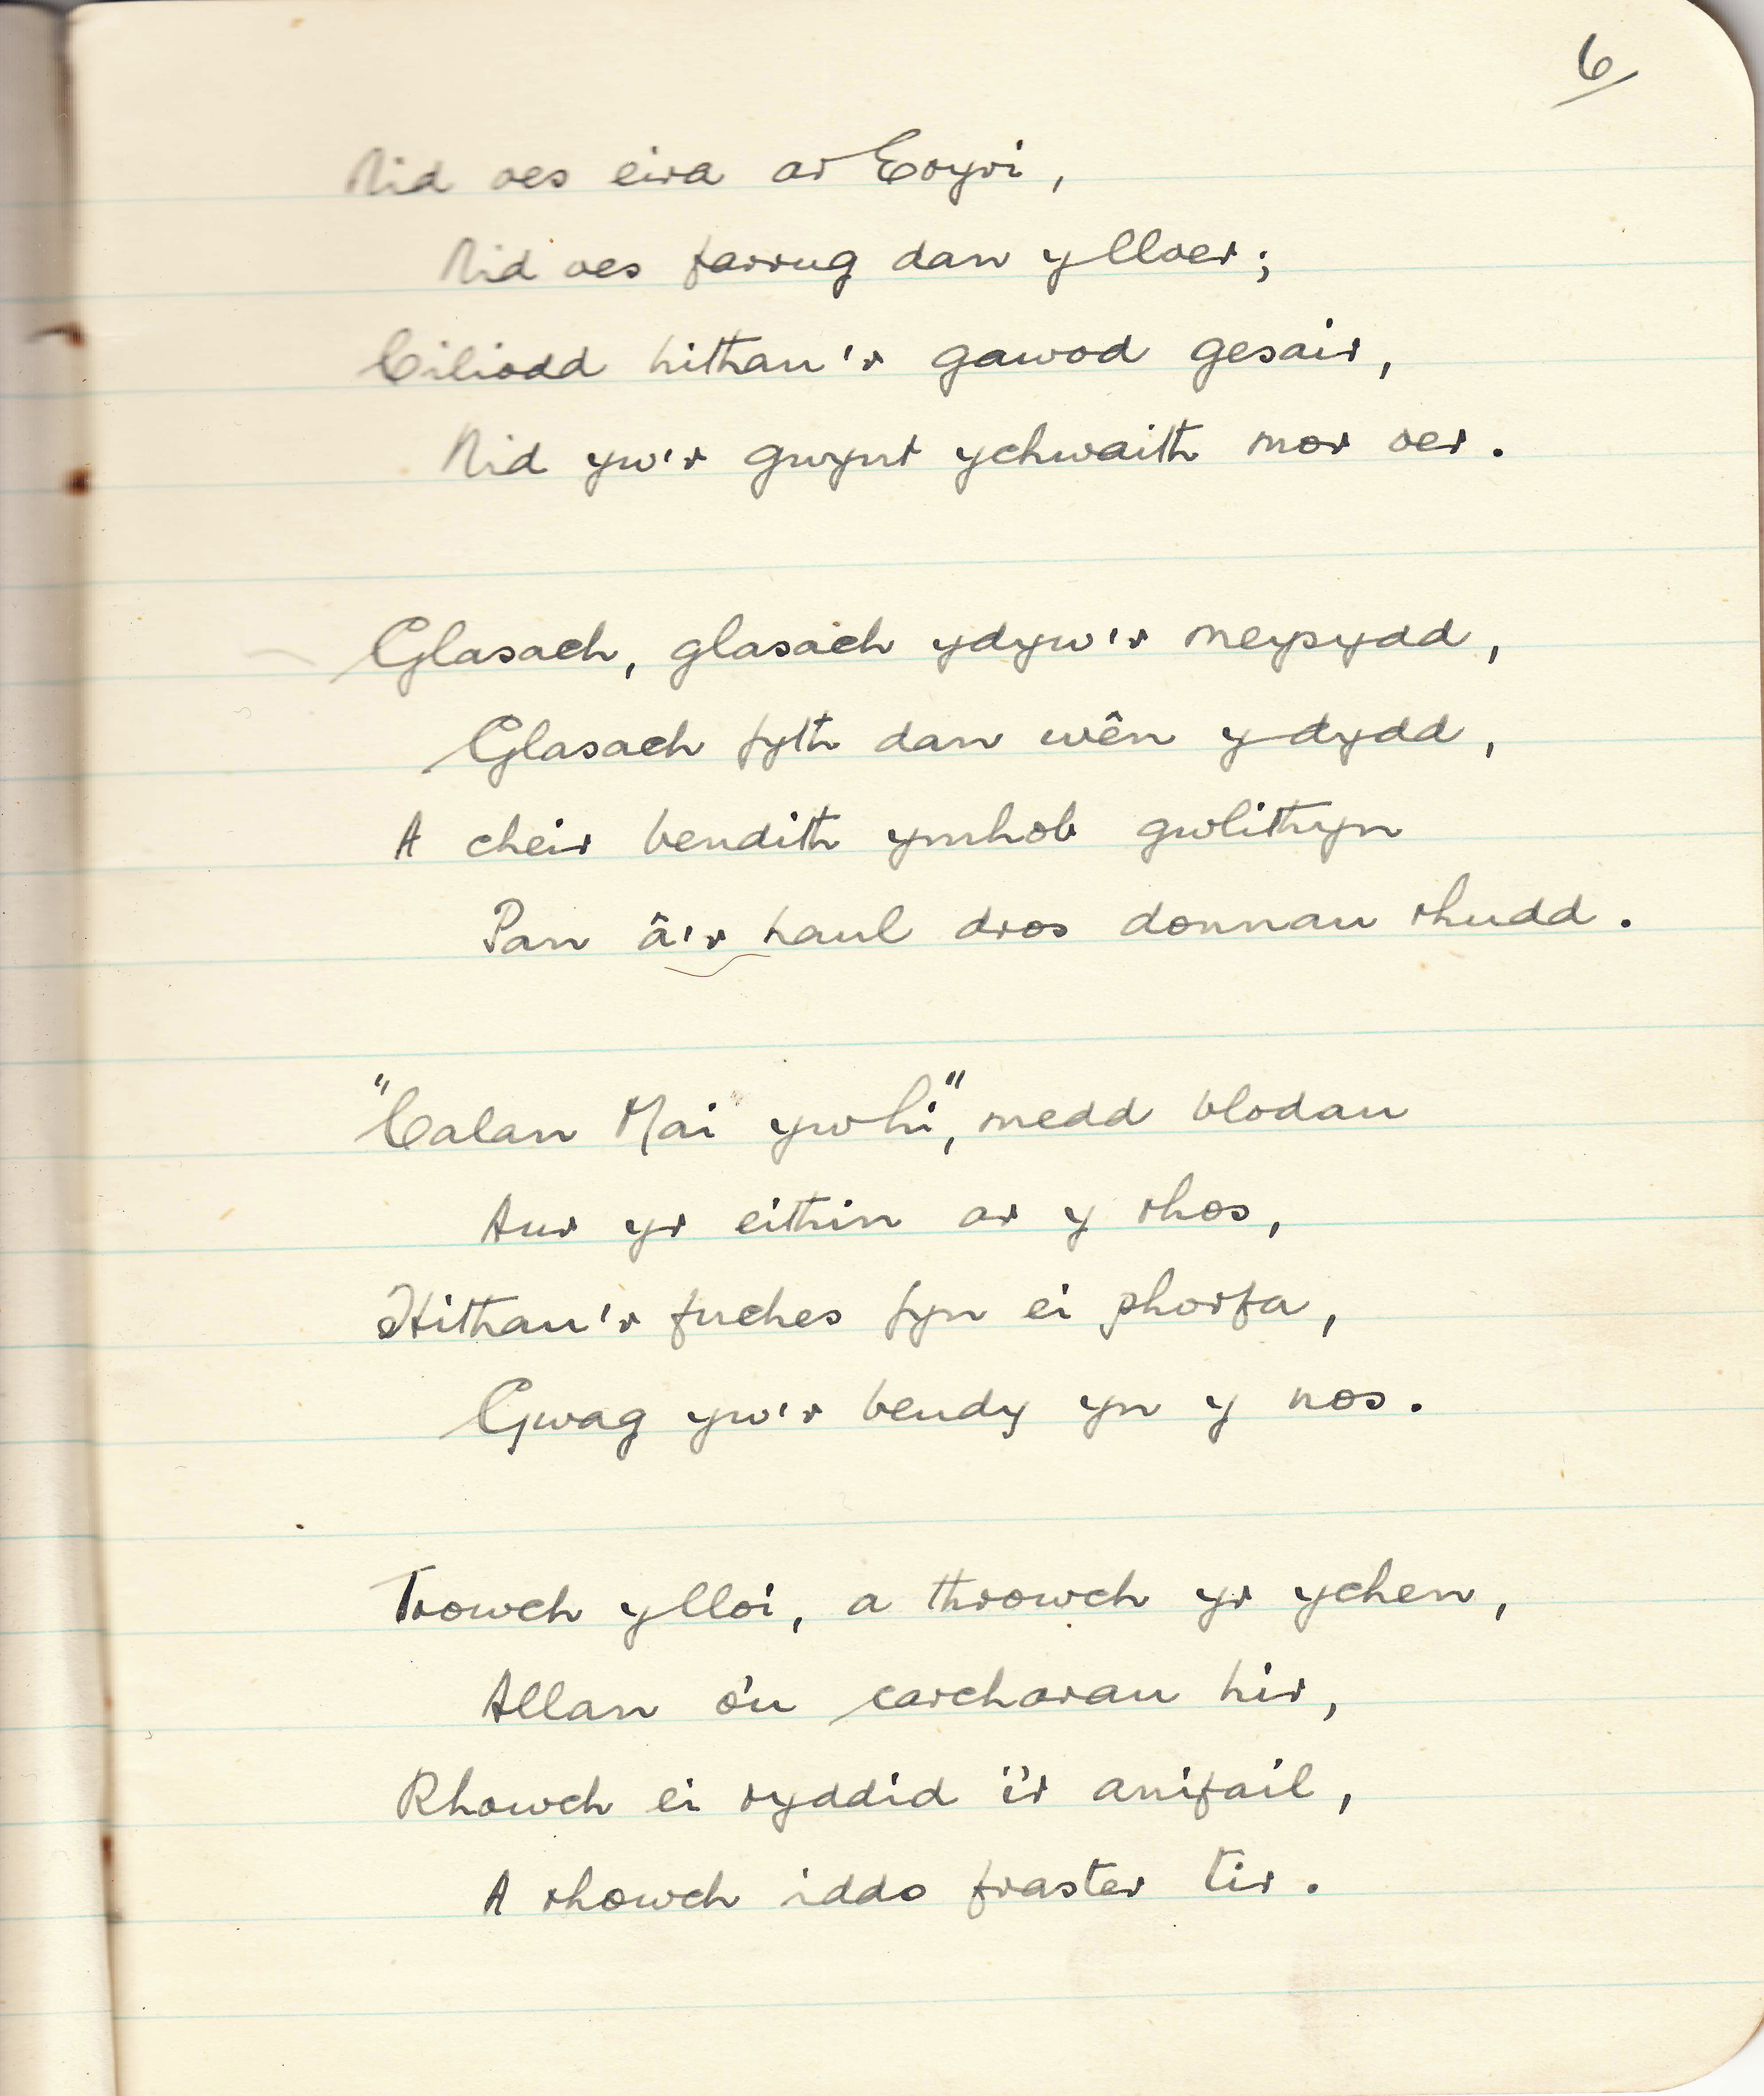 6
Nid oes eira ar Eryri,
Nid oes farrug dan y lloer;
Ciliodd hithau'r gawod gesair,
Nid yw'r gwynt ychwaith mor oer.
Glasach, glasach ydyw'r meysydd,
Glasach fyth dan wên y dydd,
A cheir bendith ymhob gwlithyn
Pan â'r haul dros donnau rhudd.
"Calan Mai yw hi", medd blodau
Aur yr eithin ar y rhos,
Hithau'r fuches fyn ei phorfa,
Gwag yw'r beudy yn y nos.
Trowch y lloi, a throwch yr ychen,
Allan o'u carcharau hir,
Rhowch ei ryddid i'r anifail,
A rhowch iddo fraster tir.